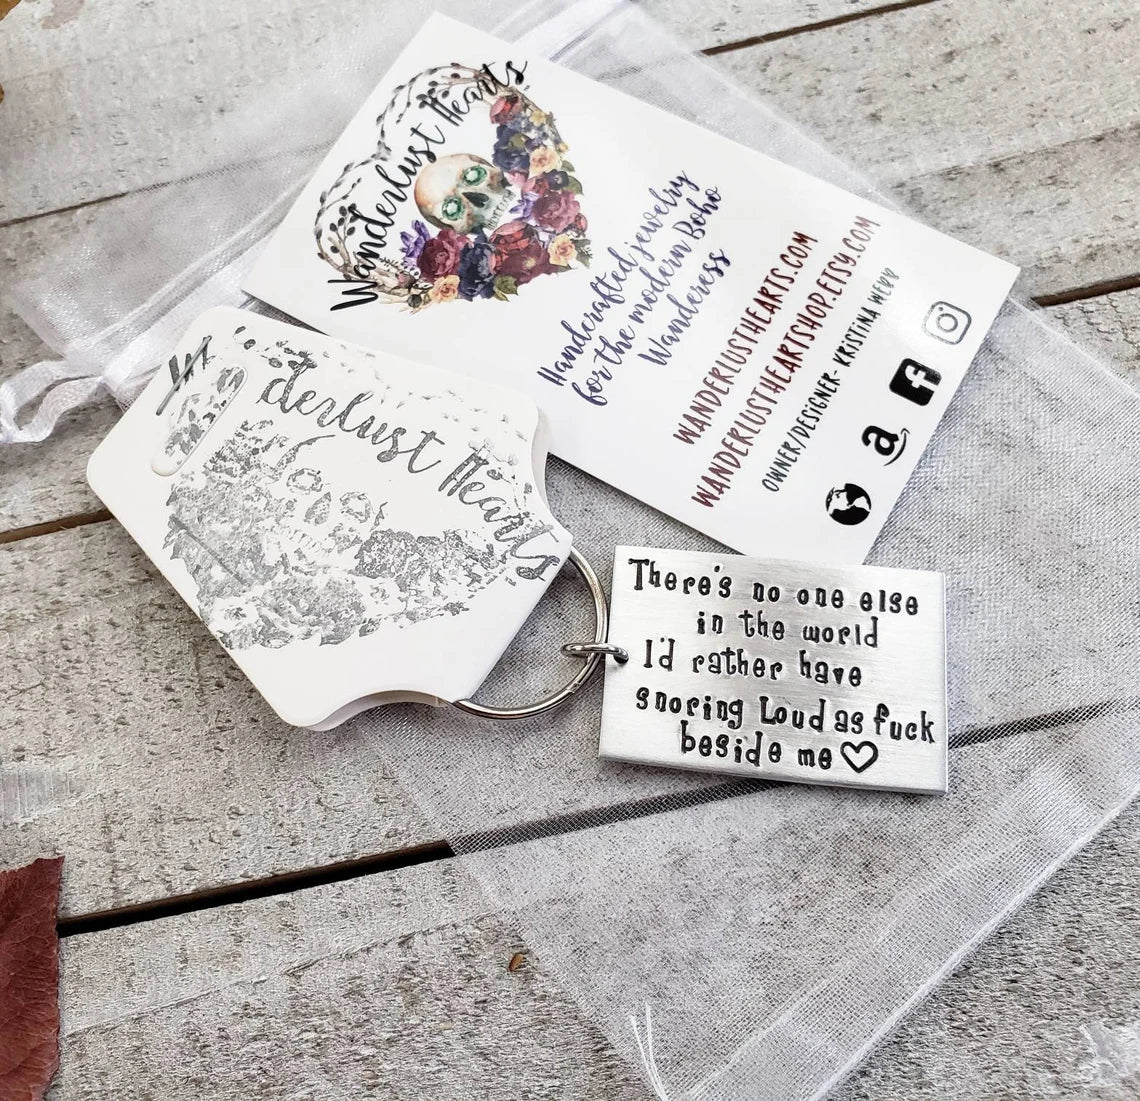 Wanderlust Hearts
Handcrafted jewelry
for the modern Boho
Wanderess
WANDERLUSTHEARTS.COM
WANDERLUSTHEARTSHOP.ETSY.COM
OWNER/DESIGNER- KRISTINA WEBB
derlust Hearts
There's no one else
in the world
I'd rather have
snoring Loud as fuck
beside me